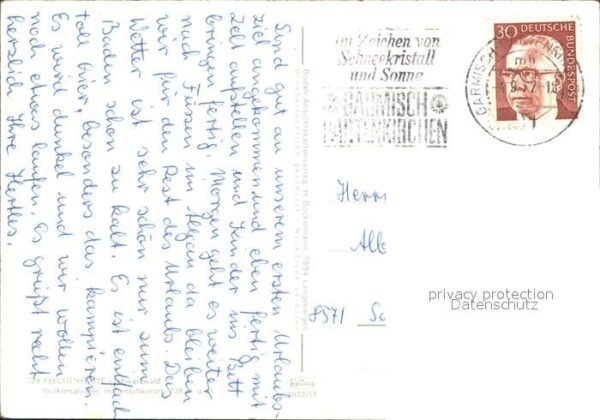 Sind gut an unserem ersten Urlaubs-
ziel angekommen und eben fertig mit
Zelt aufstellen und Kinder ins Bett
bringen fertig. Morgen geht es weiter
nach Füssen im Allgäu da bleiben
wir für den Rest des Urlaubs. Das
Wetter ist sehr schön nur zum
Baden schon zu kalt. Es ist einfach
toll hier, besonders das kampieren.
Es wird dunkel und wir wollen
noch etwas laufen. Es grüßt recht
herzlich Ihre Hertles.
729 FREUDENSTADT Schwarzwald
heilklimatischer Höhenluftkurort 728
KRÜGER
Im Zeichen von
Schneekristall
und Sonne
GARMISCH
PARTENKIRCHEN
GARMISCH
30 DEUTSCHE
BUNDESPOST
Herrn
Alb
8571 Sc
privacy protection
Datenschutz